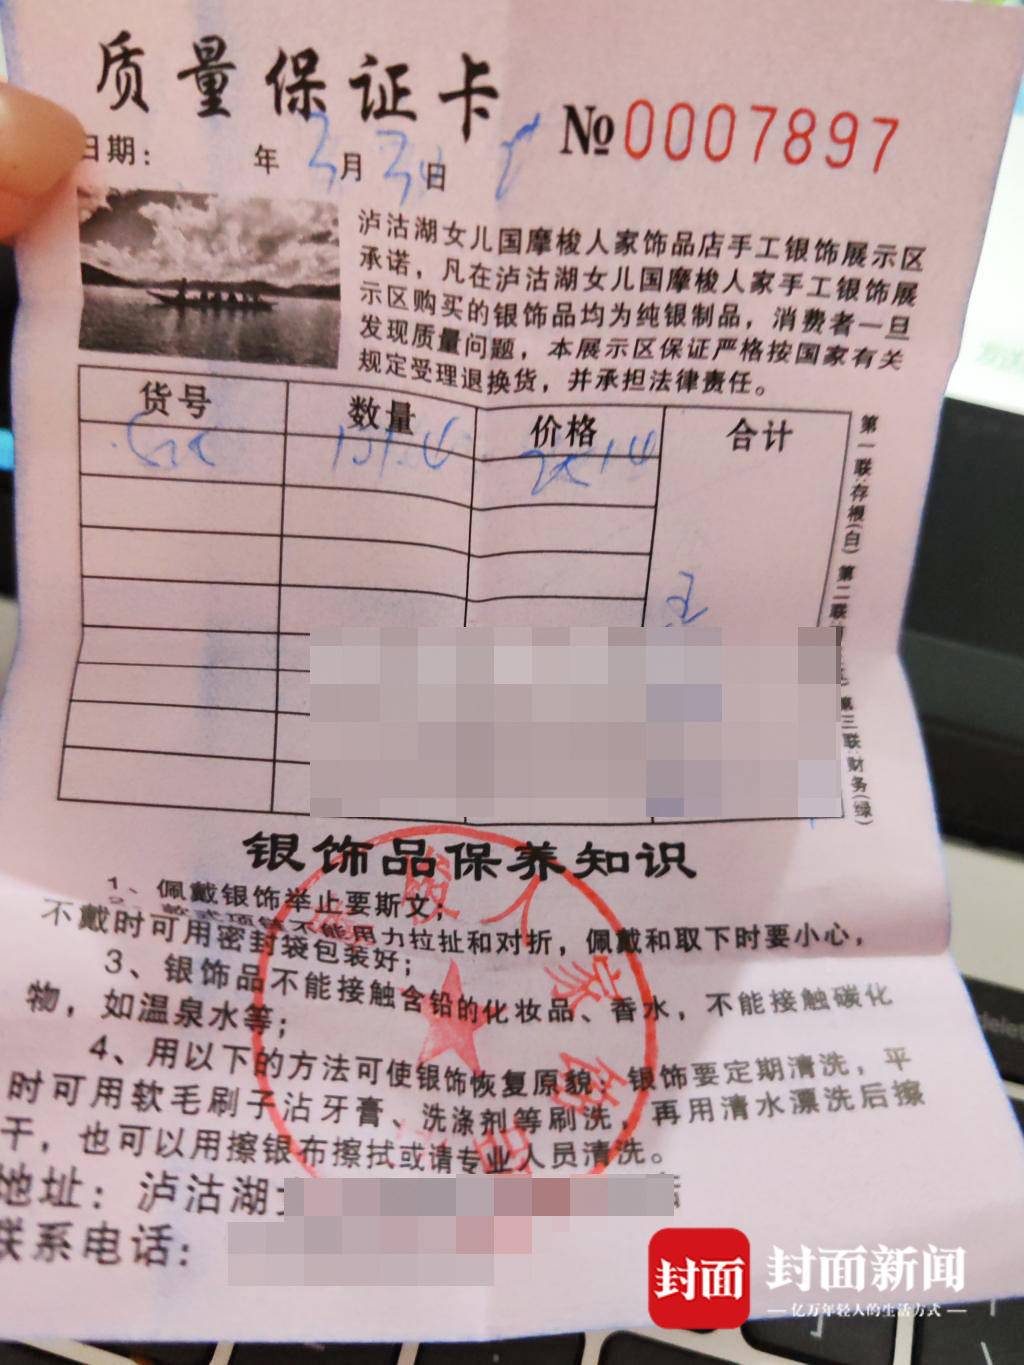 质量保证卡
№0007897
日期： 年3月3日
泸沽湖女儿国摩梭人家饰品店手工银饰展示区
承诺，凡在泸沽湖女儿国摩梭人家手工银饰展
示区购买的银饰品均为纯银制品，消费者一旦
发现质量问题，本展示区保证严格按国家有关
规定受理退换货，并承担法律责任。
货号 数量 价格 合计
第一联:存根(白) 第二联
第三联:财务(绿)
银饰品保养知识
1、佩戴银饰举止要斯文；
不能用力拉扯和对折，佩戴和取下时要小心，
不戴时可用密封袋包装好；
3、银饰品不能接触含铅的化妆品、香水，不能接触碳化
物，如温泉水等；
4、用以下的方法可使银饰恢复原貌：银饰要定期清洗，平
时可用软毛刷子沾牙膏、洗涤剂等刷洗，再用清水漂洗后擦
干，也可以用擦银布擦拭或请专业人员清洗。
梭人家饰
地址：泸沽湖
联系电话：
封面
封面新闻
亿万年轻人的生活方式
delete